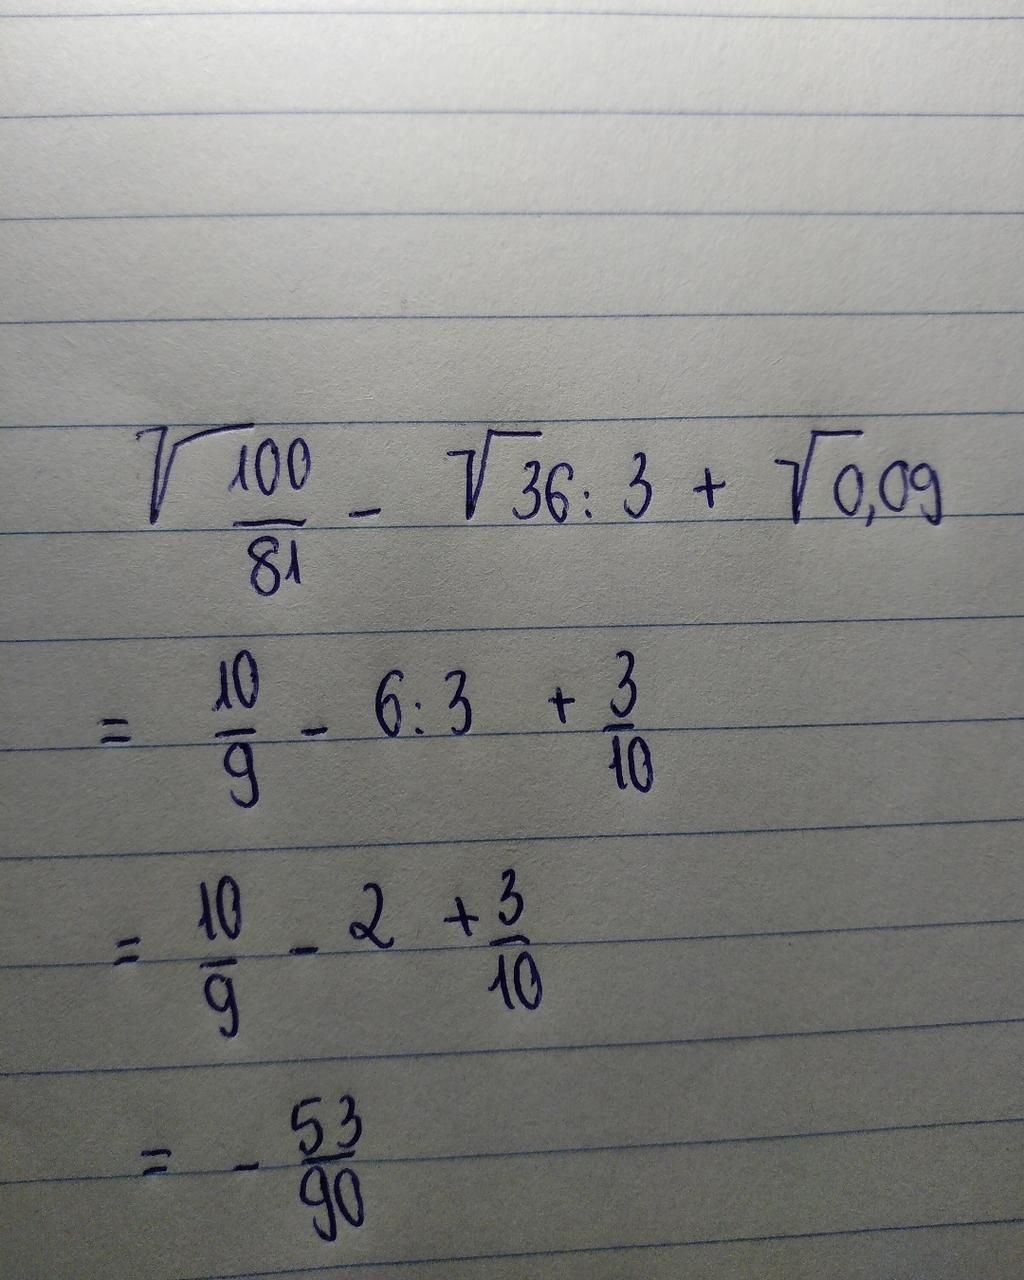 √100/81 - √36 : 3 + √0,09
= 10/9 - 6 : 3 + 3/10
= 10/9 - 2 + 3/10
= - 53/90